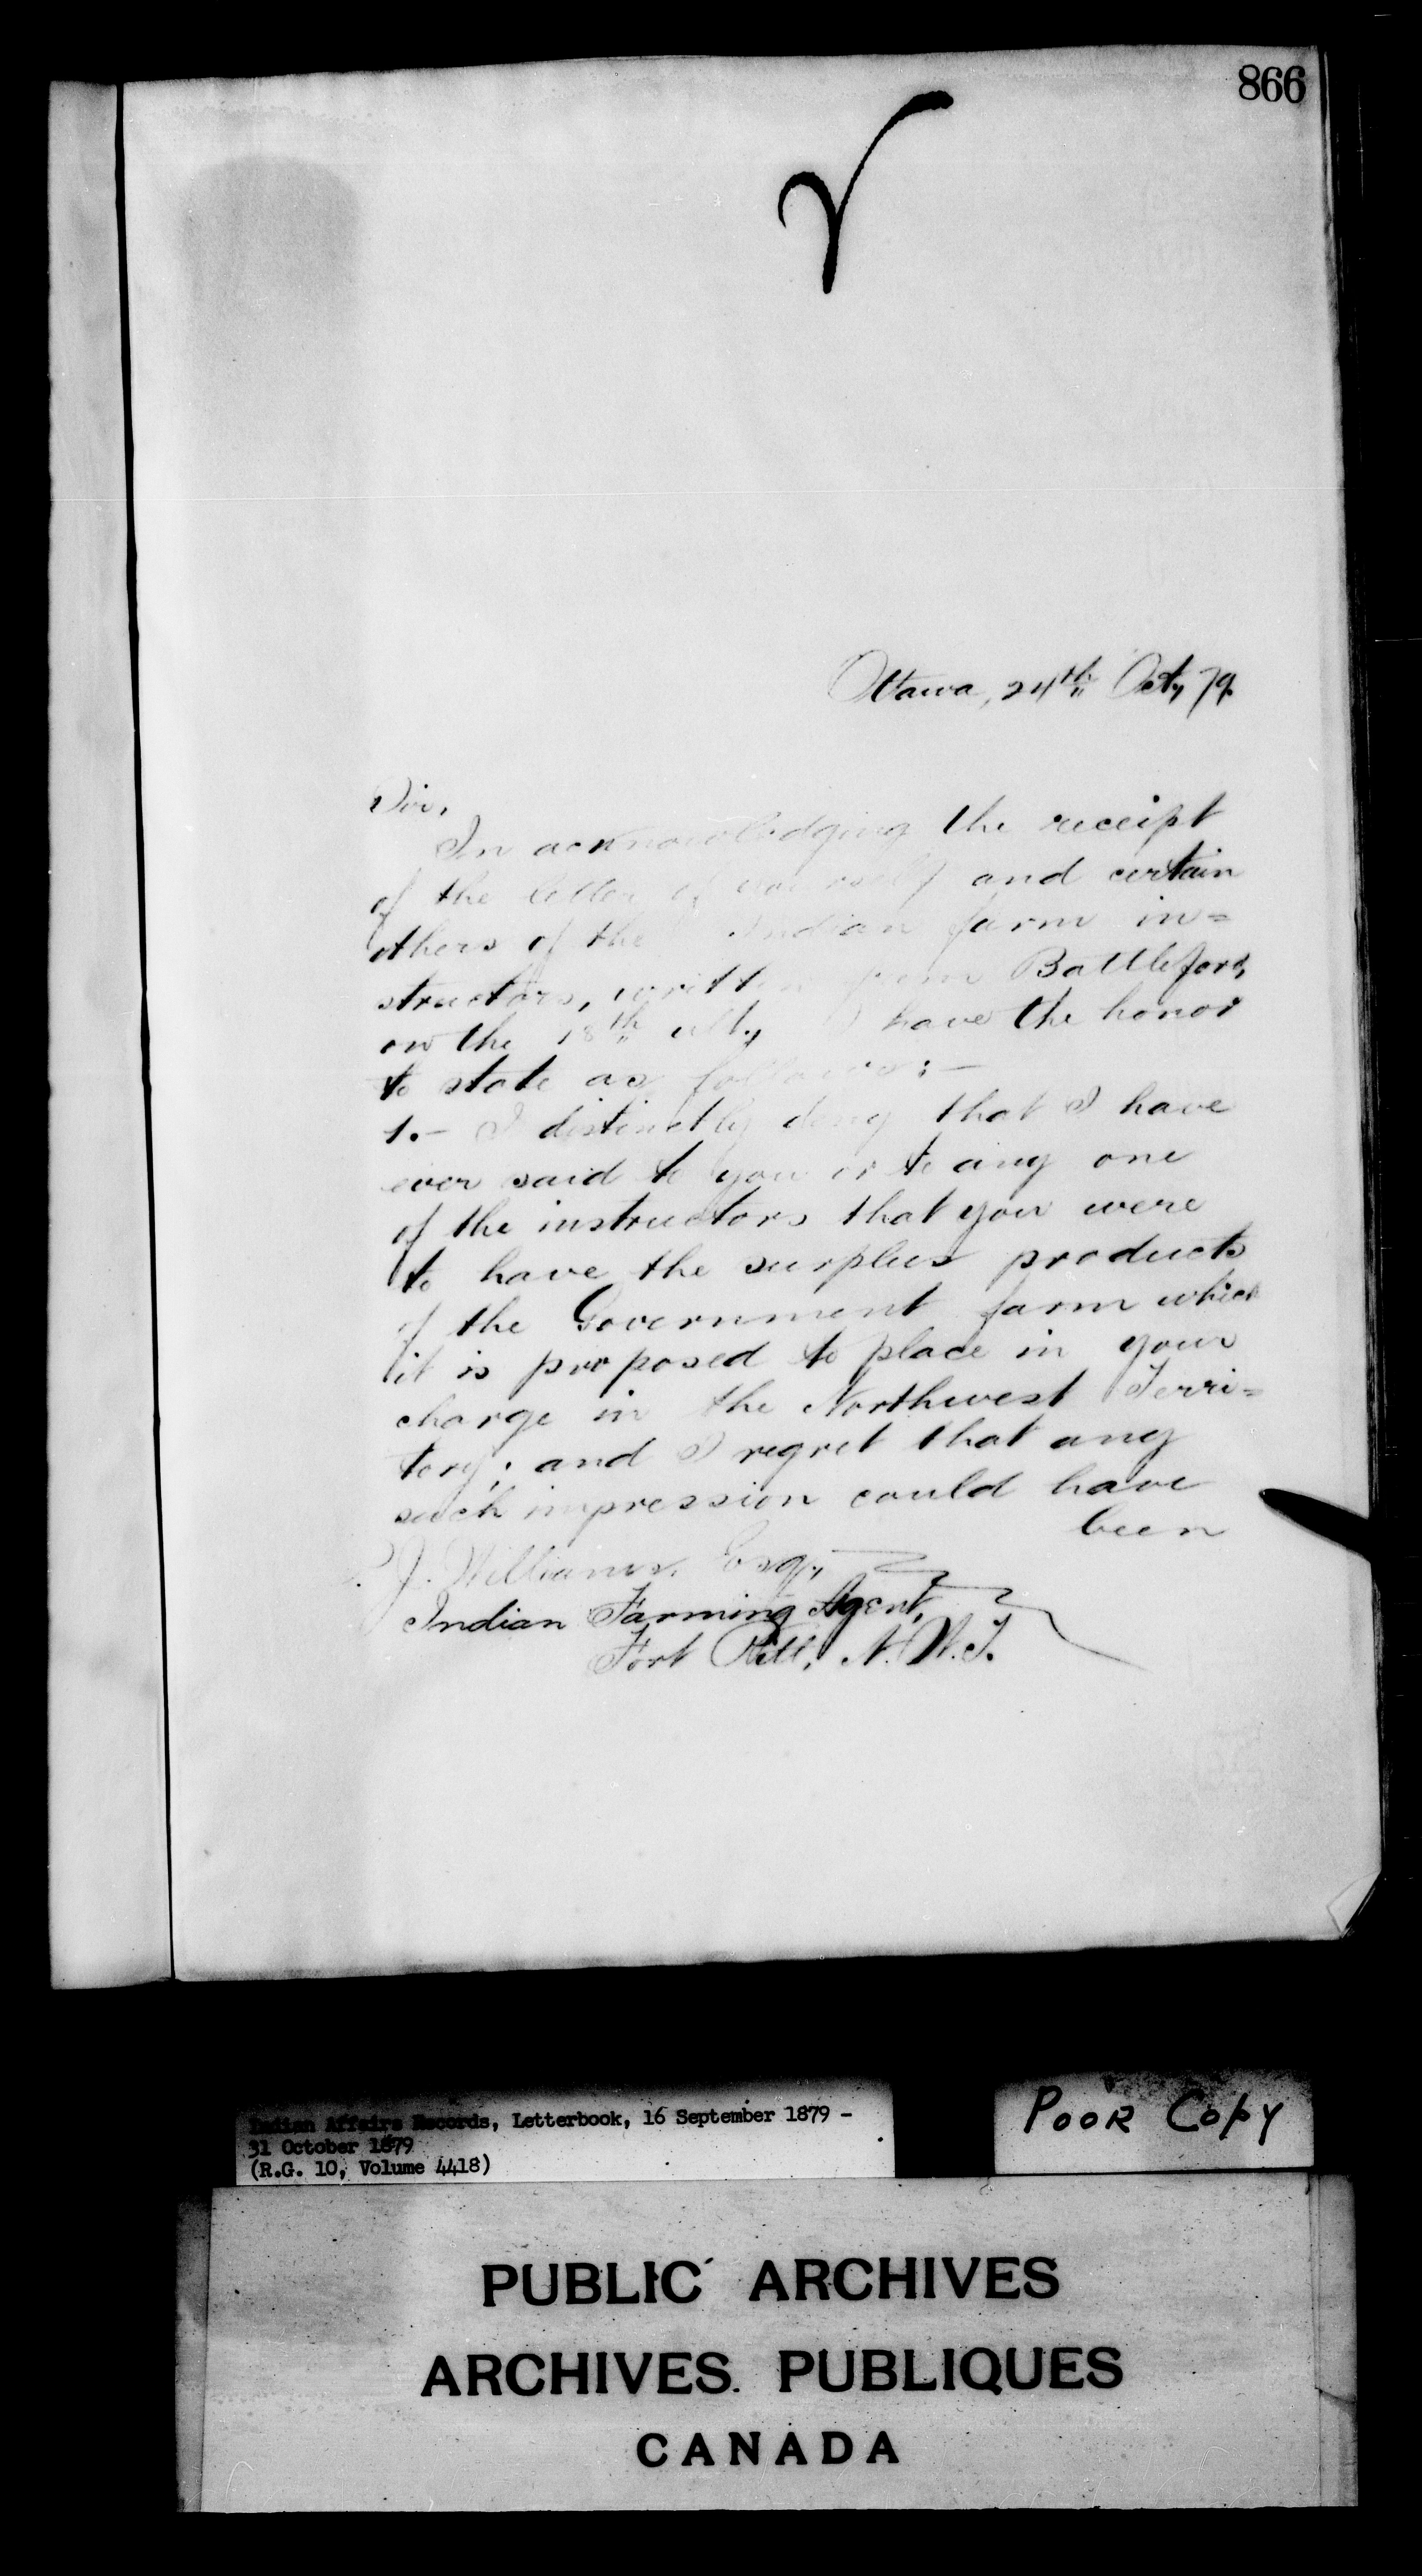 866
Ottawa, 24th Oct, 79.
Sir,
In acknowledging the receipt
of the letter of yourself and certain
others of the Indian farm in=
structors, written from Battleford,
on the 18th ult., I have the honor
to state as follows:—
1.— I distinctly deny that I have
ever said to you or to any one
of the instructors that you were
to have the surplus products
of the Government farm which
it is proposed to place in your
charge in the Northwest Terri=
tory; and I regret that any
such impression could have
been
J. Williams, Esq.,
Indian Farming Agent,
Fort Pitt, N.W.T.
Indian Affairs Records, Letterbook, 16 September 1879 -
31 October 1879
(R.G. 10, Volume 4418)
POOR COPY
PUBLIC ARCHIVES
ARCHIVES PUBLIQUES
CANADA